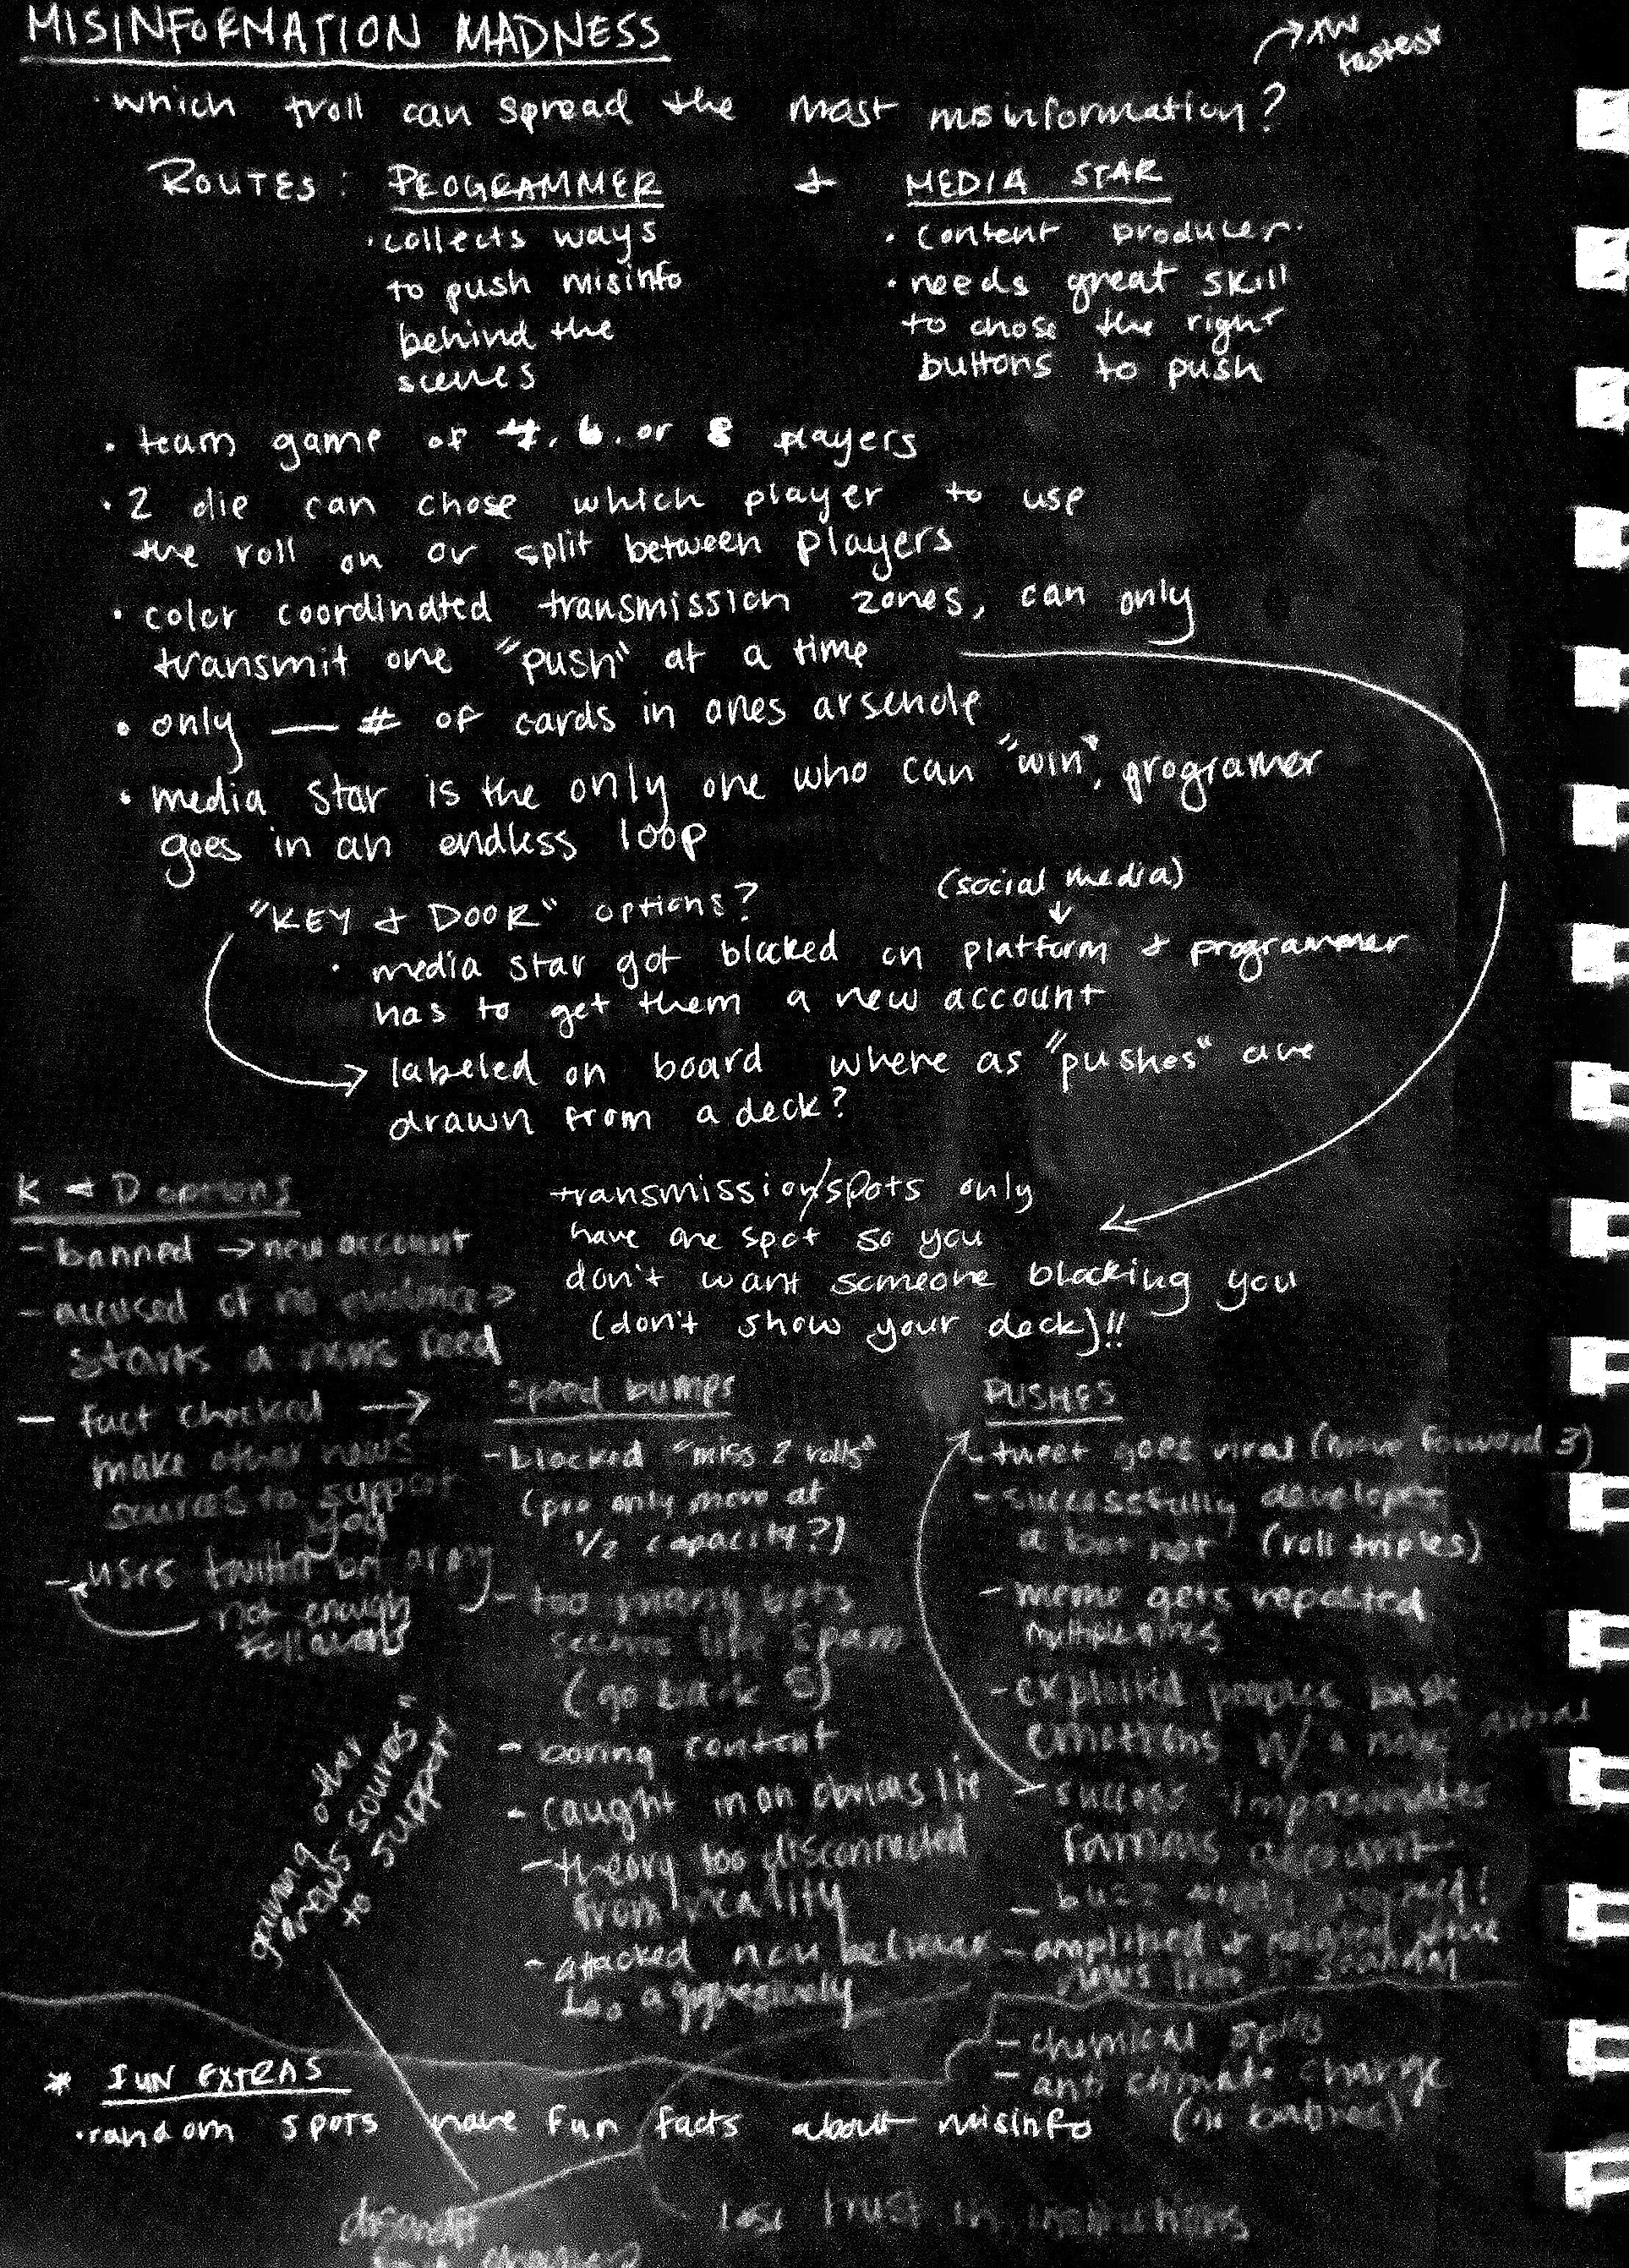 MISINFORMATION MADNESS
fastest
· which troll can spread the most misinformation?
ROUTES: PROGRAMMER + MEDIA STAR
· collects ways
to push misinfo
behind the
scenes
· content producer
· needs great skill
to chose the right
buttons to push
· team game of 4, 6, or 8 players
· 2 die can chose which player to use
the roll on or split between players
· color coordinated transmission zones, can only
transmit one "push" at a time
· only — # of cards in ones arsenole
· media star is the only one who can "win", programer
goes in an endless loop
"KEY + DOOR" options?
(social media)
· media star got blocked on platform + programmer
has to get them a new account
labeled on board where as "pushes" are
drawn from a deck?
transmission/spots only
have one spot so you
don't want someone blocking you
(don't show your deck)!!
K + D options
- banned → new account
- accused of no evidence →
starts a news feed
- fact checked →
make other news
sources to support
you
- uses twitter bot army
not enough
followers
gaining other
"news sources"
to support
speed bumps
- blocked "miss 2 rolls"
(pro only move at
1/2 capacity?)
- too many bots
seems like spam
(go back 5)
- boring content
- caught in an obvious lie
- theory too disconnected
from reality
- attacked non believer
too aggressively
PUSHES
- tweet goes viral (move forward 3)
- successfully developes
a bot net (roll triples)
- meme gets reposted
multiple times
- exploited peoples
emotions w/ a
- success impersonates
famous account
- buzz
- amplified +
news
- chemical
- anti climate change
* FUN EXTRAS
· random spots have fun facts about misinfo
discredit
lose trust in institutions